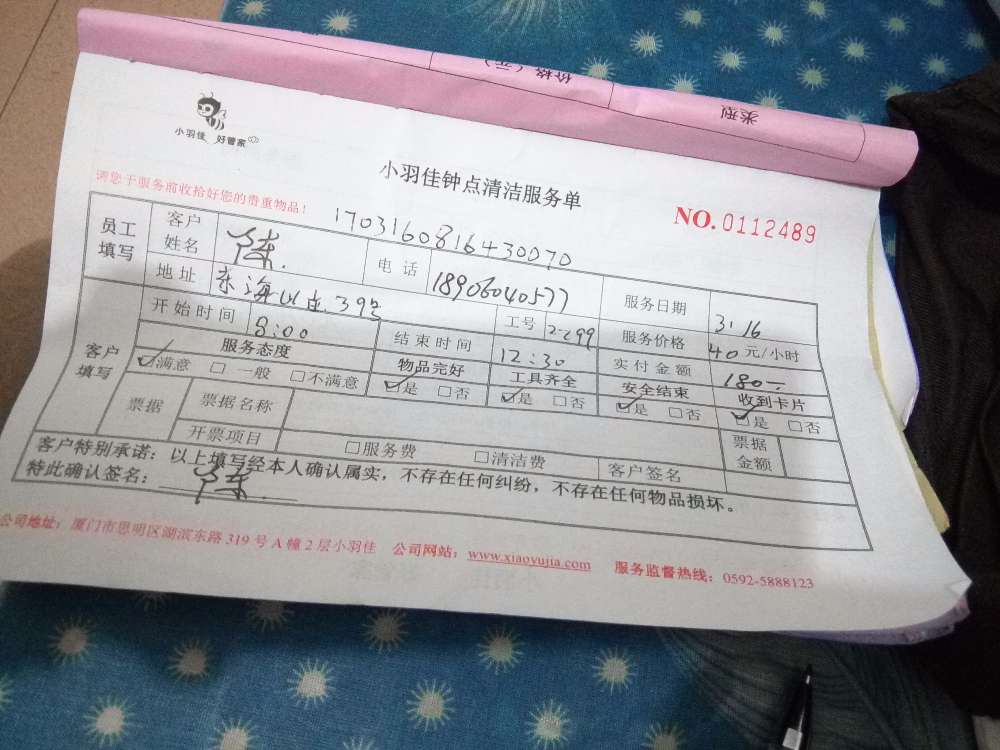 价格（元）
类型
小羽佳 好管家
小羽佳钟点清洁服务单
请您于服务前收拾好您的贵重物品！
NO. 0112489
1703160816430070
员工填写 客户姓名 陈. 电话 18906040577 服务日期 3.16
地址 东海 39号 工号 2-299 服务价格 40元/小时
客户填写 开始时间 8:00 结束时间 12:30 实付金额 180
服务态度 物品完好 工具齐全 安全结束 收到卡片
☑满意 □一般 □不满意 ☑是 □否 ☑是 □否 ☑是 □否 ☑是 □否
票据 票据名称 票据金额
开票项目 □服务费 □清洁费 客户签名
客户特别承诺：以上填写经本人确认属实，不存在任何纠纷，不存在任何物品损坏。
特此确认签名： 陈.
公司地址：厦门市思明区湖滨东路319号A幢2层小羽佳 公司网站：www.xiaoyujia.com 服务监督热线：0592-5888123